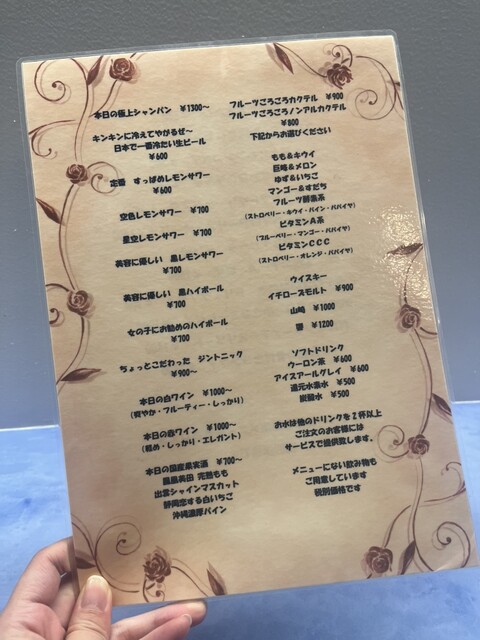 本日の極上シャンパン ¥1300〜
キンキンに冷えてやがるぜ〜
日本で一番冷たい生ビール
¥600
定番 すっぱめレモンサワー
¥600
空色レモンサワー ¥700
星空レモンサワー ¥700
美容に優しい 黒レモンサワー
¥700
美容に優しい 黒ハイボール
¥700
女の子にお勧めのハイボール
¥700
ちょっとこだわった ジントニック
¥900〜
本日の白ワイン ¥1000〜
(爽やか・フルーティー・しっかり)
本日の赤ワイン ¥1000〜
(軽め・しっかり・エレガント)
本日の国産果実酒 ¥700〜
鳳凰美田 完熟もも
出雲シャインマスカット
静岡恋する白いちご
沖縄濃厚パイン
フルーツごろごろカクテル ¥900
フルーツごろごろノンアルカクテル
¥800
下記からお選びください
もも&キウイ
巨峰&メロン
ゆず&いちご
マンゴー&すだち
フルーツ酵素系
(ストロベリー・キウイ・パイン・パパイヤ)
ビタミンA系
(ブルーベリー・マンゴー・パパイヤ)
ビタミンCCC
(ストロベリー・オレンジ・パパイヤ)
ウイスキー
イチローズモルト ¥900
山崎 ¥1000
響 ¥1200
ソフトドリンク
ウーロン茶 ¥600
アイスアールグレイ ¥600
還元水素水 ¥500
炭酸水 ¥500
お水は他のドリンクを2杯以上
ご注文のお客様には
サービスで提供致します。
メニューにない飲み物も
ご用意しています
税別価格です